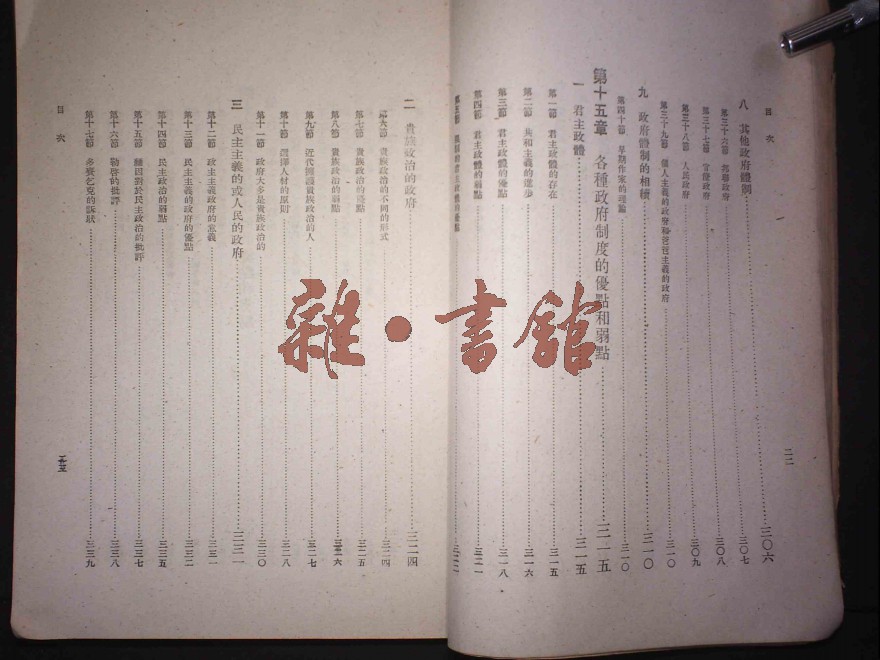 目次
八 其他政府體制 三〇六
第三十六節 邦聯政府 三〇七
第三十七節 官僚政府 三〇八
第三十八節 人民政府 三〇九
第三十九節 個人主義的政府和 主義的政府 三一〇
九 政府體制的相續 三一〇
第四十節 早期作家的理論 三一〇
第十五章 各種政府制度的優點和弱點 三一五
一 君主政體 三一五
第一節 君主政體的存在 三一五
第二節 共和主義的進步 三一六
第三節 君主政體的優點 三一八
第四節 君主政體的弱點 三二一
第五節
二二
二 貴族政治的政府 三二四
第六節 貴族政治的不同的形式 三二四
第七節 貴族政治的優點 三二五
第八節 貴族政治的弱點 三二六
第九節 近代擁護貴族政治的人 三二七
第十節 選擇人材的原則 三二八
第十一節 政府大多是貴族政治的 三三〇
三 民主主義的或人民的政府 三三一
第十二節 民主主義政府的意義 三三一
第十三節 民主主義的政府的優點 三三二
第十四節 民主政治的弱點 三三五
第十五節 梅因對於民主政治的批評 三三七
第十六節 勒啓的批評 三三八
第十七節 多賚乞克的訴狀 三三九
目次
雜·書館